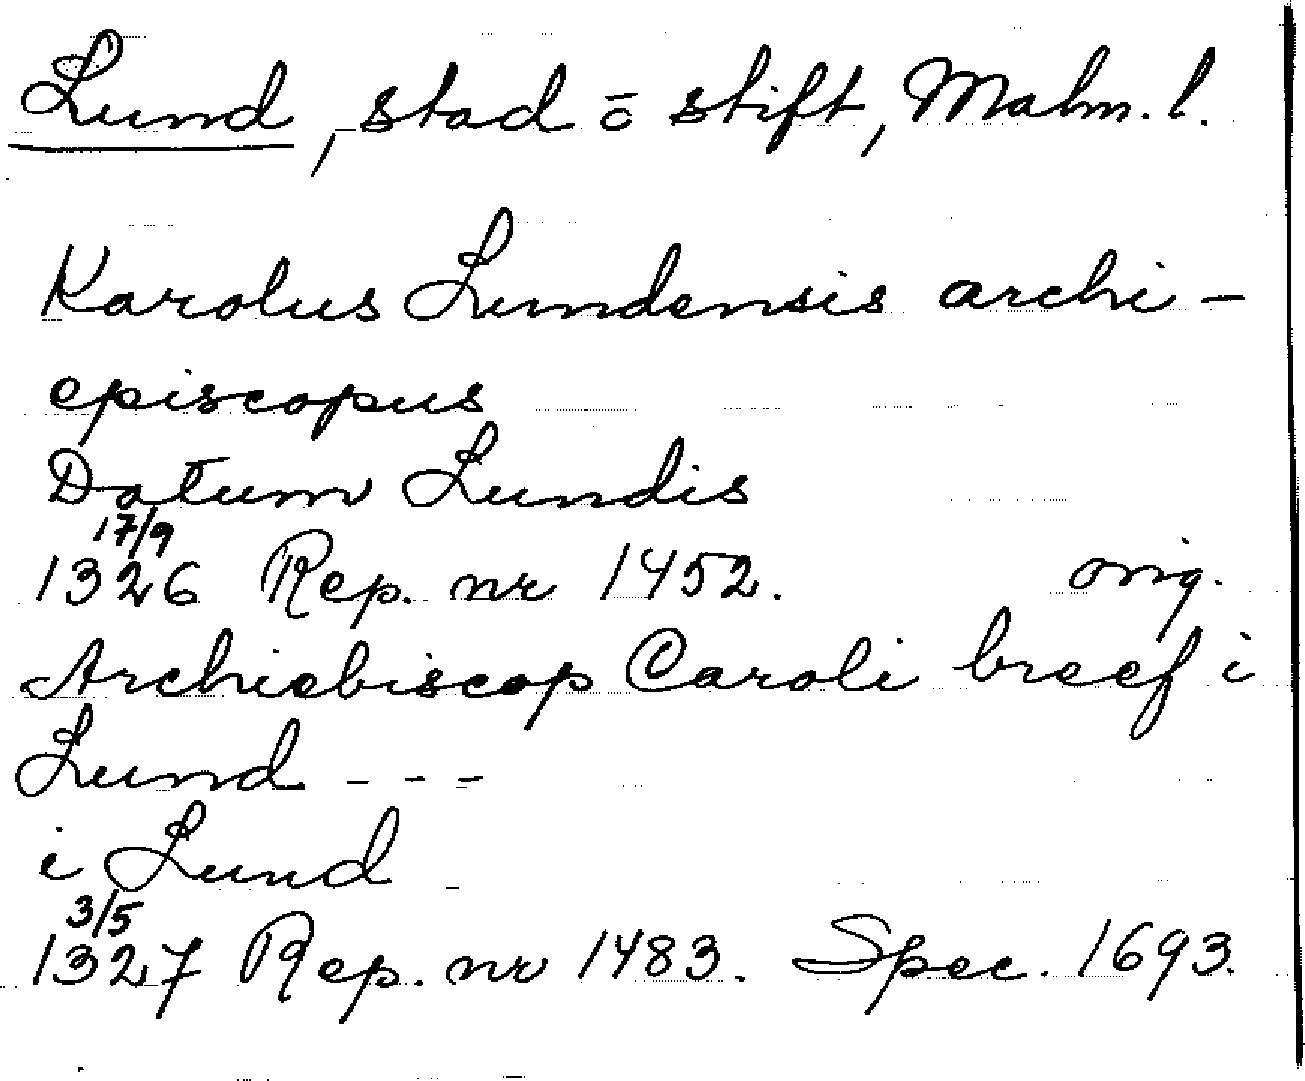 Lund, stad o stift, Malm. l.
Karolus Lundensis archi-
episcopus
Datum Lundis
17/9
1326 Rep. nr 1452. orig.
Archiebiscop Caroli breef i
Lund ---
i Lund
3/5
1327 Rep. nr 1483. Spec. 1693.